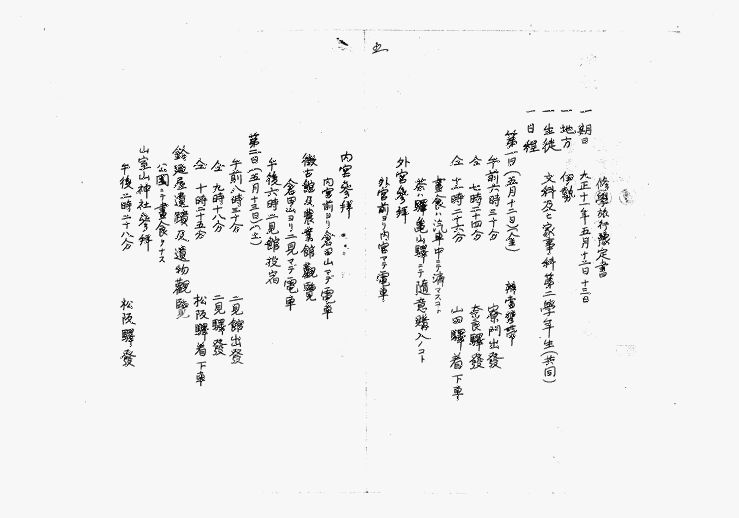 五
修學旅行豫定書
一期日 大正十一年五月十二日 十三日
一地方 伊勢
一生徒 文科及ビ家事科第二學年生(共同)
一日程
第一日(五月十二日)(金)
午前六時三十分 寮門出發
仝 七時二十四分 奈良驛發
仝 十一時二十六分 山田驛着下車
晝食ハ汽車中ニテ濟マスコト
茶ハ 驛亀山驛ニテ隨意購入ノコト
外宮參拜
外宮前ヨリ内宮マデ電車
内宮參拜
内宮前ヨリ倉田山マデ電車
徴古館及農業館觀覽
倉田山ヨリ二見マデ電車
午後六時二見館投宿
第二日(五月十三日)(土)
午前八時三十分 二見館出發
仝 九時十八分 二見驛發
仝 十時二十五分 松阪驛着下車
鈴廼屋遺蹟及遺物觀覽
公園ニテ晝食ヲナス
山室山神社參拜
午後二時二十八分 松阪驛發